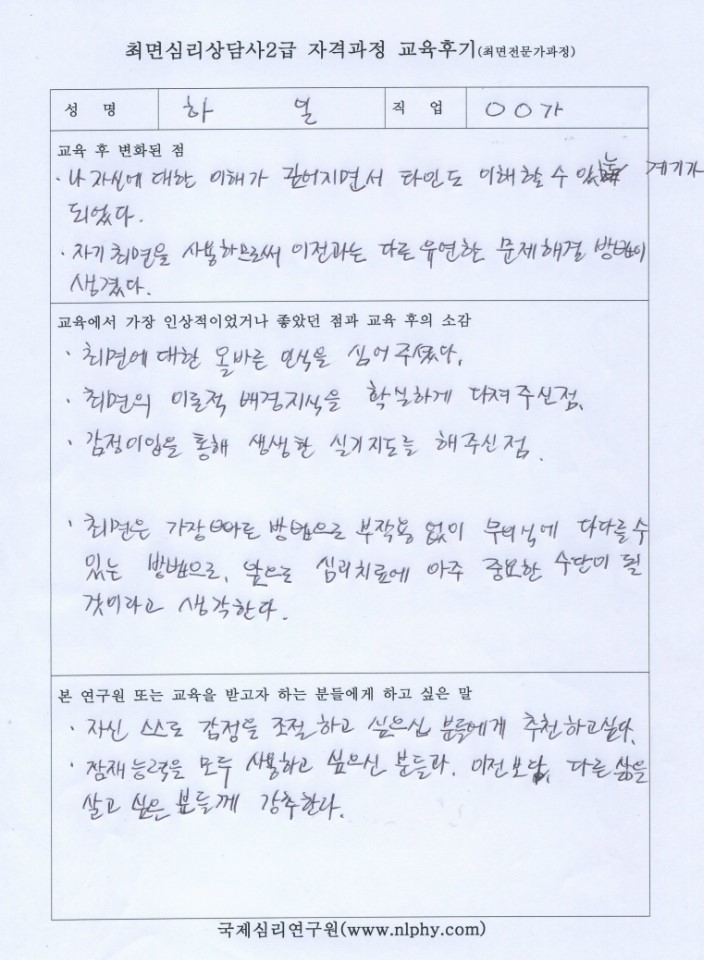 최면심리상담사2급 자격과정 교육후기(최면전문가과정)
성 명 하 얼 직 업 ○○가
교육 후 변화된 점
· 나 자신에 대한 이해가 깊어지면서 타인도 이해할 수 있는 계기가
되었다.
· 자기최면을 사용하므로써 이전과는 다른 유연한 문제해결 방법이
생겼다.
교육에서 가장 인상적이었거나 좋았던 점과 교육 후의 소감
· 최면에 대한 올바른 인식을 심어 주셨다.
· 최면의 이론적 배경지식을 확실하게 다져주신점.
· 감정이입을 통해 생생한 실기지도를 해주신점.
· 최면은 가장 빠른 방법으로 부작용 없이 무의식에 다다를 수
있는 방법으로, 앞으로 심리치료에 아주 중요한 수단이 될
것이라고 생각한다.
본 연구원 또는 교육을 받고자 하는 분들에게 하고 싶은 말
· 자신 스스로 감정을 조절하고 싶으신 분들에게 추천하고싶다.
· 잠재능력을 모두 사용하고 싶으신 분들과, 이전보다, 다른 삶을
살고 싶은 분들께 강추한다.
국제심리연구원(www.nlphy.com)